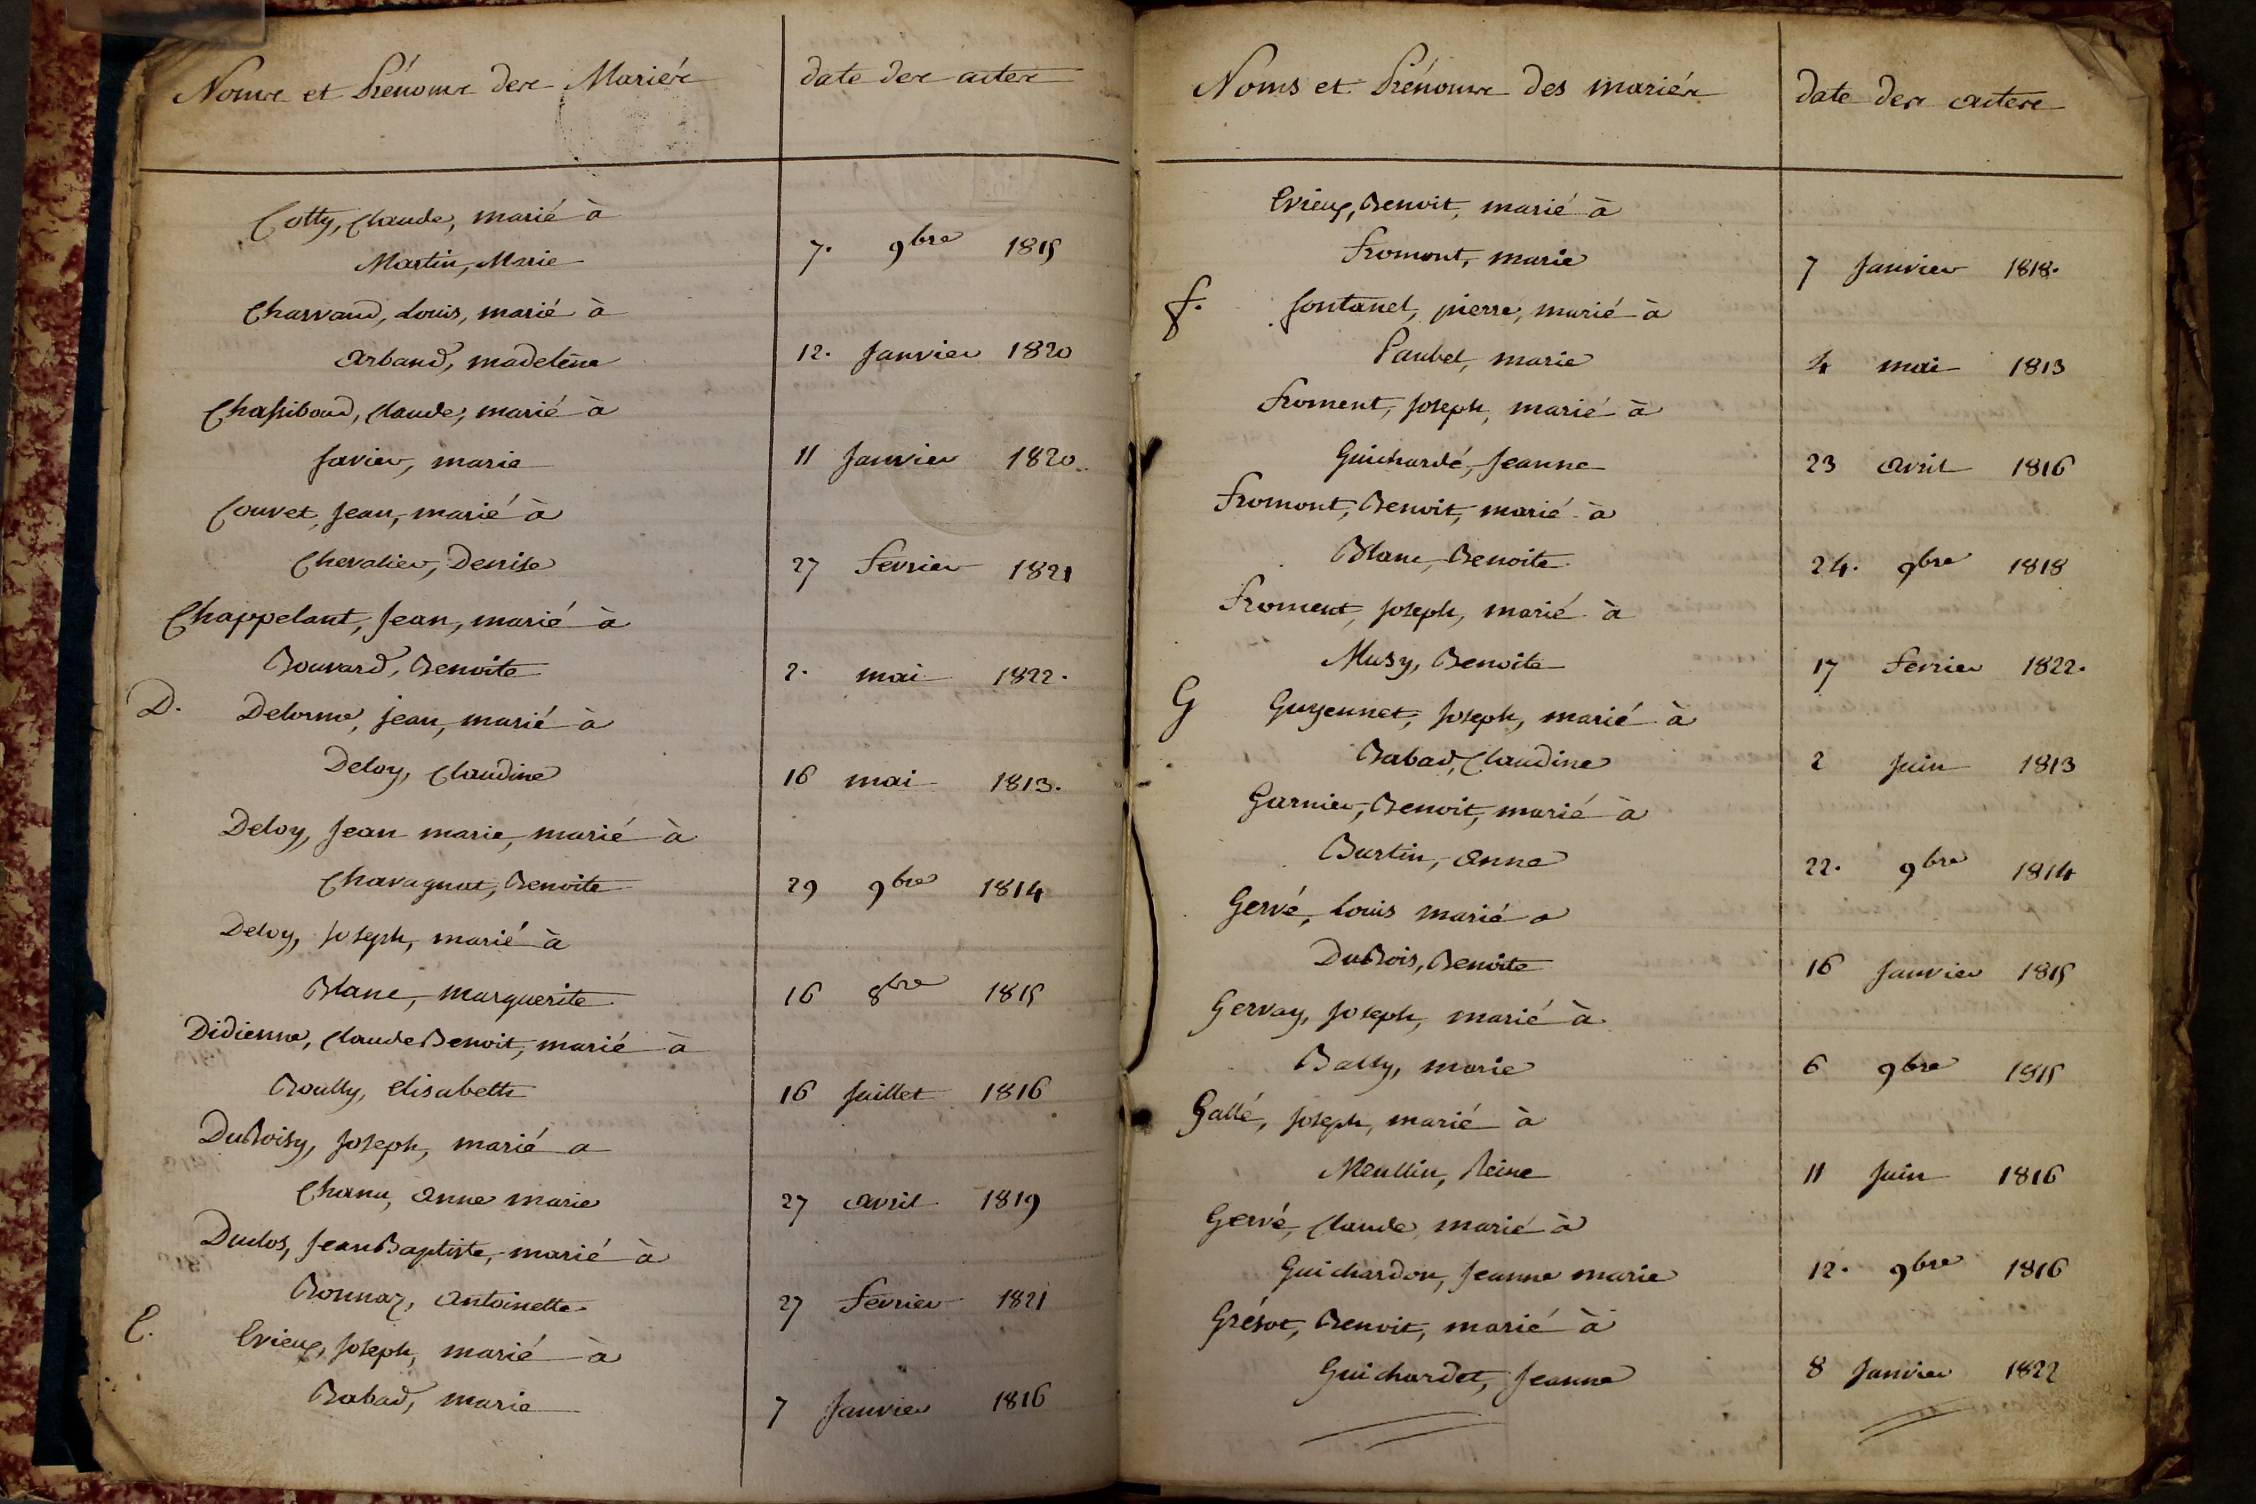 Noms et Prénoms des Mariés
date des actes
Cotty, Claude, marié à
Martin, Marie
7. 9bre 1815
Charvand, Louis, marié à
Arband, madeléne
12. Janvier 1820
Chassiboud, Claude, marié à
Javier, marie
11 Janvier 1820.
Couvet, Jean, marié à
Chevalier, Denise
27 fevrier 1821
Chappelant, Jean, marié à
Bouvard, Benoite
2. mai 1822.
D. Delorme, jean, marié à
Deloy, Claudine
16 mai 1813.
Deloy, Jean marie, marié à
Chavagnat, Benoite
29 9bre 1814
Deloy, Joseph, marié à
Blanc, marguerite
16 8bre 1815
Didienne, Claude Benoit, marié à
Boully, elisabeth
16 Juillet 1816
DuBoisy, Joseph, marié a
Chanu, anne marie
27 avril 1819
Duclos, Jean Baptiste, marié à
Bonnaz, antoinette
27 fevrier 1821
E. Evieux, Joseph, marié à
Babad, marie
7 Janvier 1816
Noms et Prénoms des mariés
date des actes
Evieux, Benoit, marié à
Fromont, marie
7 Janvier 1818.
f. fontanel, pierre, marié à
Paubel, marie
4 mai 1813
Froment, Joseph, marié à
Guichardé, Jeanne
23 avril 1816
Fromont, Benoit, marié à
Blanc, Benoite
24. 9bre 1818
Froment, Joseph, marié à
Musy, Benoite
17 fevrier 1822.
G Guyennet, Joseph, marié à
Babad, Claudine
2 Juin 1813
Garnier, Benoit, marié à
Burtin, anne
22. 9bre 1814
Gervé, Louis marié a
DuBois, Benoite
16 Janvier 1815
Gervay, Joseph, marié à
Bally, marie
6 9bre 1815
Gallé, Joseph, marié à
Meullin, Reine
11 Juin 1816
Gervé, Claude marié à
Guichardon, Jeanne marie
12. 9bre 1816
Grésot, Benoit, marié à
Guichardet, Jeanne
8 Janvier 1822